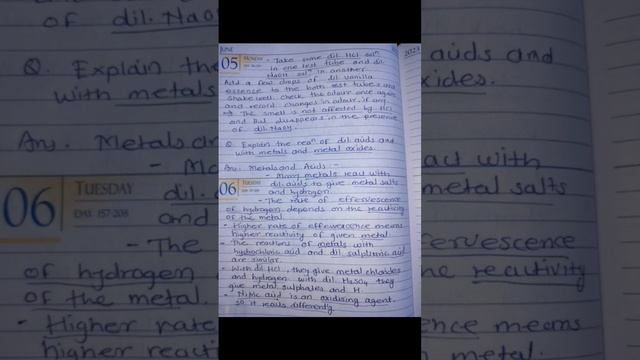 JUNE
2023
05 MONDAY
- Take some dil. HCl solⁿ
in one test tube and dil.
NaOH solⁿ in another.
Add a few drops of dil vanilla
essence to the both test tubes and
shake well. check the odour once again
and record changes in odour, if any.
→ The smell is not affected by HCl
and But disappears in the presence
of dil. NaOH.
Q Explain the reaⁿ of dil. acids and
with metals and metal oxides.
Ans. Metals and Acids :-
06 TUESDAY
DAY 157-208
- Many metals react with
dil. acids to give metal salts
and hydrogen.
- The rate of effervescence
of hydrogen depends on the reactivity
of the metal.
- Higher rate of effervescence means
higher reactivity of given metal.
- The reactions of metals with
hydrochloric acid and dil sulphuric acid
are similar.
- With dil HCl, they give metal chlorides
and hydrogen with dil. H₂SO₄ they
give metal sulphates and H.
- Nitric acid is an oxidising agent.
so it reacts differently.